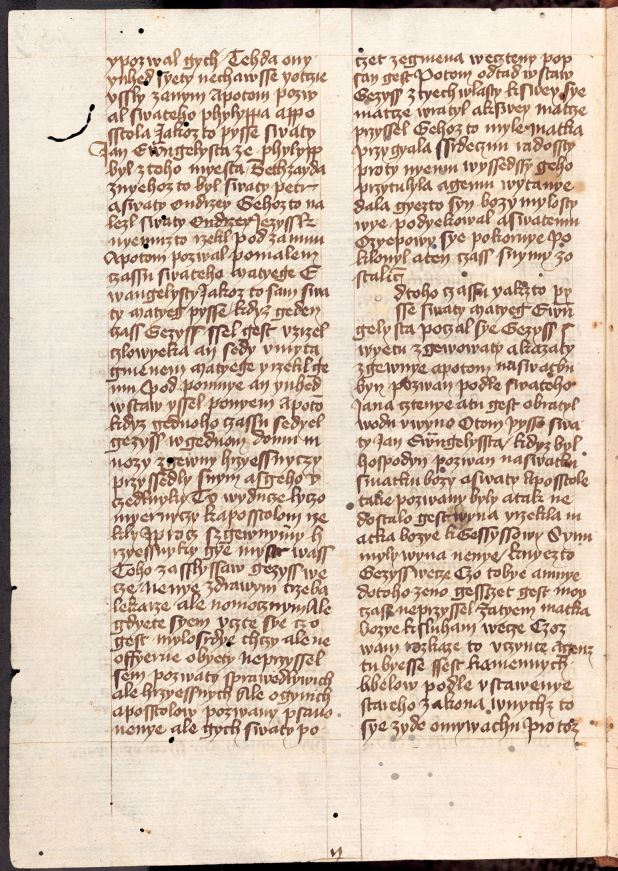 ypozwal gych Tehda ony
yuhed syety nechawsse yotczie
vssly zanym Apotom pozw
al swateho phylyppa appo
sstola Jakoz to pysse swaty
Jan Ewangelysta ze phylypp
byl ztoho myesta Bethzayda
znyehoz to byl swaty petr
aswaty ondrzey Gehoz to na
lezl swaty Ondrzey Jezyss k
nyemuz to rzekl pod zamnu
Apotom pozwal pomalem
czassu swateho matyege E
wangelysty Jakoz to sam swa
ty matyeg pysse kdyz geden
czass Gezyss ssel gest vzrzel
czlowyeka an sedy vmyta
gmenem matyege yrzekl ge
mu pod pomnye an yuhed
wstaw yssel ponyem Apoto
kdyz gednoho czassu sedyel
gezyss wgednom domu m
nozy zgewny hrzyessnyczy
przyssedly snym ageho v
czedlnyky Ty wyduce lyczo
myernyczy kapostolom rze
kly y procz szgewnymy h
rzyessnyky gye mystr wass
Toho zasslyssaw gezyss we
cze nenye zdrawym trzeba
lekarze ale nemocznym Ale
gdyete syem vczte sye czo
gest mylosrdye chczy ale ne
offyerue obyety neprzyssel
sem pozwaty sprawedlywich
ale hrzyessnych Ale oginich
apostolow pozwany psano
nenye ale gych swaty po
czet zegmena weczteny pop
san gest Potom odtad wstaw
Gezyss ztyech wlasty kswey sye
matcze wratyl akswey matcze
przyssel Gehoz to myle matka
przygyala ssrdecznu radosty
proty nyemu wyssedssy geho
przytuhla agemu wytanye
dala gyezto syn bozy mylosty
wye podyekowal aswatemu
Ozyepowy sye pokornye Po
klonyl aten czass snymy zo
stal
dtoho czassu yakz to py
sse swaty matyeg Ewan
gelysta poczal sye Gezyss s
wyetu zgewowaty akazaty
zgewnye apotom naswatbu
byn pozwan podle swateho
Jana cztenye atu gest obratyl
wodu vwyno Otom pysse swa
ty Jan Ewangelyssta kdyz byl
hospodyn pozwan naswatbu
smatku bozy aswaty Aposstole
take pozwany byly atak ne
dostalo gest wyna vrzekla m
atka bozye k Gessyssowy Synu
myly wyna nenye knyezto
Gezyss wecze Czo tobye amnye
dotoho zeno gesstet gest moy
czass neprzyssel zatyem matka
bozye ksluham wecze Czoz
wam rozkaze to vczynte Agenz
tu byesse ssest kamennych
kbelow podle vstawenye
stareho zakona wnychz to
sye zyde omywachu protoz